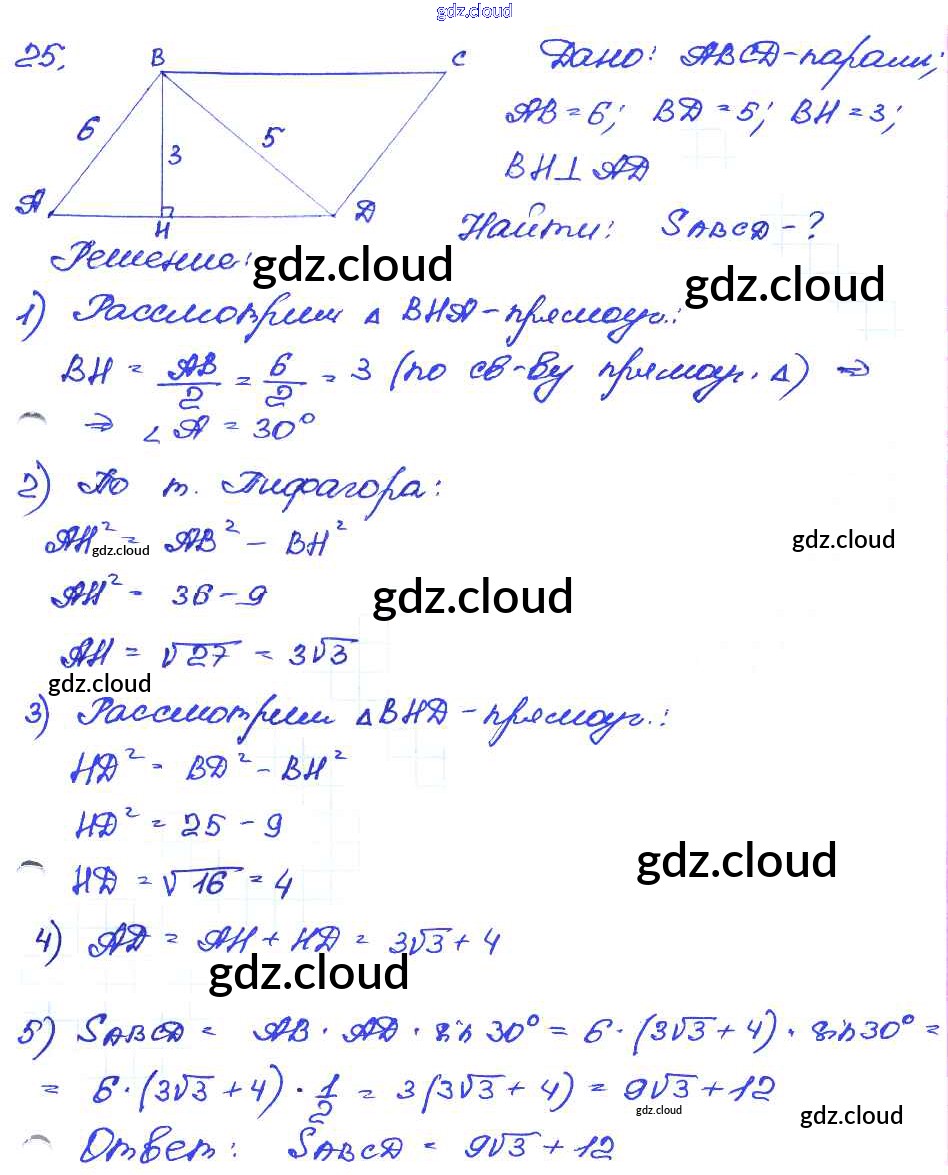 gdz.cloud
25.
B C
6 3 5
A H D
Дано: ABCD-парал.;
AB = 6; BD = 5; BH = 3;
BH ⊥ AD
Найти: SABCD - ?
Решение:
gdz.cloud
gdz.cloud
1) Рассмотрим △ BHA-прямоуг.:
BH = AB/2 = 6/2 = 3 (по св-ву прямоуг. △) ⇒
⇒ ∠A = 30°
2) По т. Пифагора:
AH² = AB² - BH²
gdz.cloud
gdz.cloud
AH² = 36 - 9
gdz.cloud
AH = √27 = 3√3
gdz.cloud
3) Рассмотрим △BHD-прямоуг.:
HD² = BD² - BH²
HD² = 25 - 9
gdz.cloud
HD = √16 = 4
4) AD = AH + HD = 3√3 + 4
gdz.cloud
5) SABCD = AB · AD · sin 30° = 6 · (3√3 + 4) · sin 30° =
= 6 · (3√3 + 4) · 1/2 = 3(3√3 + 4) = 9√3 + 12
gdz.cloud
gdz.cloud
Ответ: SABCD = 9√3 + 12